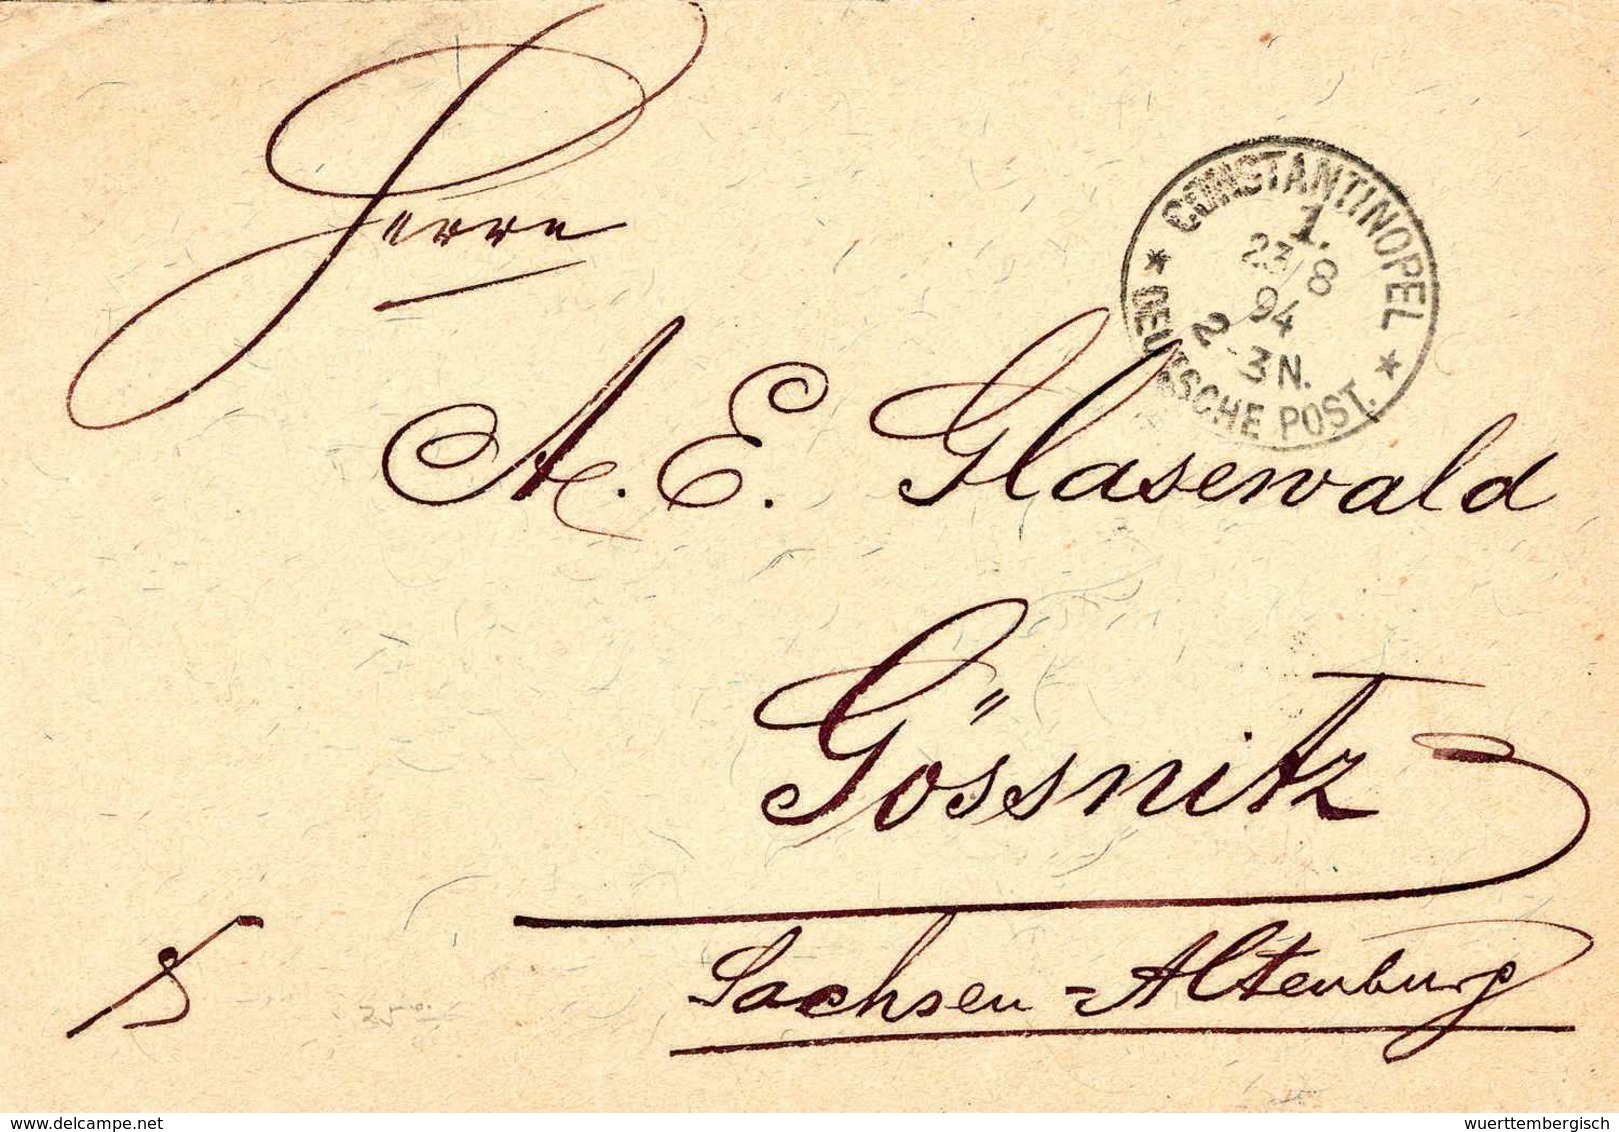 Herrn
CONSTANTINOPEL
1.
23/8
94
2-3N.
* DEUTSCHE POST. *
A. E. Glasewald
Gössnitz
Sachsen=Altenburg
delcampe.net
wuerttembergisch